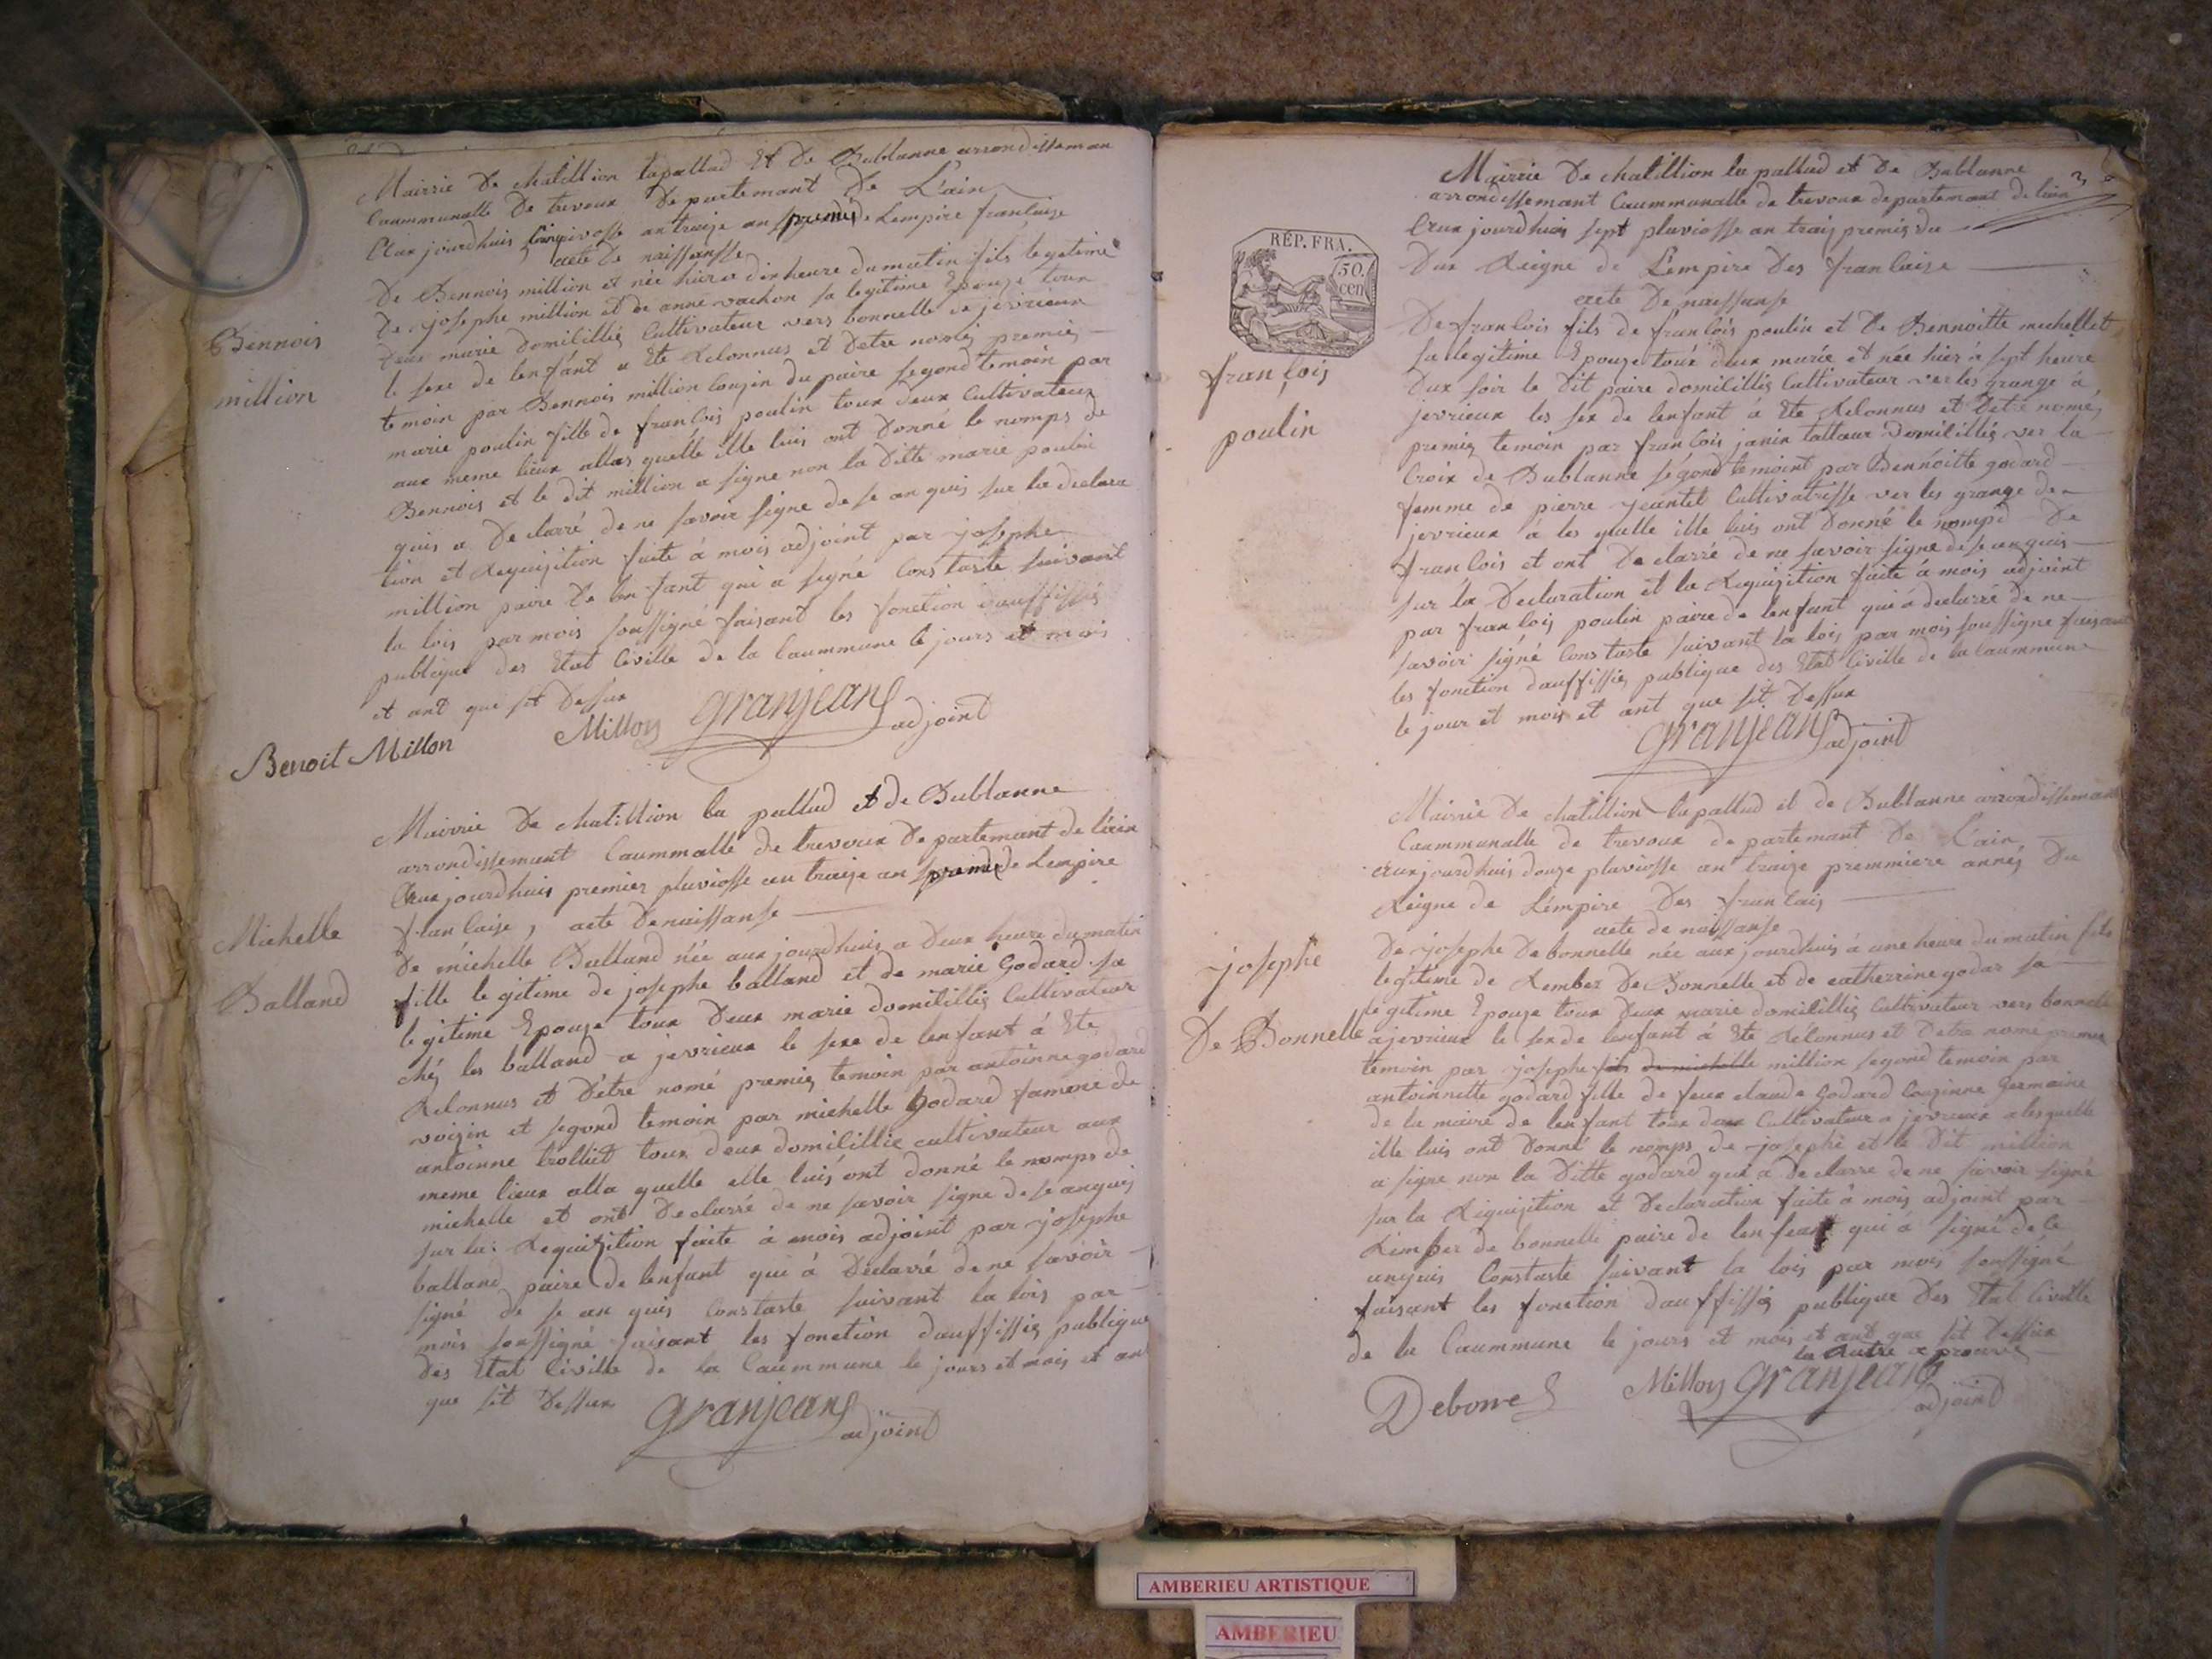 Mairrie De chatillion lapallud Et De Bublanne arrondisseman
Caummunalle De trevoux Departemant De L'ain
Aux jourdhuis pluviosse an traize an premié de Lempire franSaise
acte De naissansse
De Bennois million et née hier a dix heure du matin fils legitime
De josephe million et de anne vachon sa legitime Epouze toux
deux marie domiSilliés Cultivateur vers bonnelle de jevrieux
le sexe de lenfant a Ete ReConnus et Detre només premiés
temoin par Bennois million Couzin du paire segond temoin par
marie poulin fille de franSois poulin toux deux Cultivateux
aux meme lieux allas quelle ille luis ont Donné le nomps de
Bennois et le dit million a signe non la Ditte marie poulin
quis a Declarré de ne savoir signe de se an quis sur la declara
tion et Requizition faite à mois adjoint par josephe
million paire De lenfant qui a signé Constasté suivant
la lois par mois soussigné faisant les fonction dauffissiés
publique des Etat Civille de la Caummune le jours et mois
et ant que sit Dessux
Bennois
million
Benoit Millon Millon granjean adjoint
Mairrie De chatillion la pallud et de Bublanne
arrondissemant Caummalle de trevoux De partemant de l'ain
Aux jourdhuis premier pluviosse an traize an premié de Lempire
franSaise, acte De naissanse
De michelle Balland née aux jourdhuis a Deux heure du matin
fille legitime de josephe balland et de marie Godard sa
legitime Epouze toux Deux marie domiSilliés Cultivateur
chés les balland a jevrieux le sexe de lenfant à Ete
ReConnus et D'être nomé premiés temoin par antoinne godard
voizin et segond temoin par michelle godard famme de
antoinne trolliet toux deux domiSillie cultivateur aux
meme lieux alla quelle elle luis ont donné le nomps de
michelle et ont Declarré de ne savoir signe de se anquis
sur la Requizition faite à mois adjoint par josephe
balland paire de lenfant qui à Declarré de ne savoir
signé de se an quis Constaste suivant la lois par
mois soussigné faisant les fonction dauffissiés publique
des Etat Civille de la Caummune le jours et mois et an
que sit Dessux
Michelle
Balland
granjean adjoint
Mairrie De chatillion la pallud et De Bublanne
arrondissemant Caummunalle de trevoux departemant de lain
Aux jourdhuis sept pluviosse an traiz premiés du
Dux Reigne de L'empire Des franSaise
acte De naissanse
RÉP. FRA.
50.
cen
De franSois fils de franSois poulin et De Bennoitte michellet
sa legitime Epouze toux deux marie et née hier à sept heure
Dux soir le Dit paire domiSilliés Cultivateur vers les grange à
jevrieux les sex de lenfant à Ete ReConnus et Detre nomé,
premiés temoin par franSois janin tallaur DomiSilliés ver la
Croix de Bublanne segond temoint par Bennoitte godard
femme de pierre jeantet Cultivatrisse ver les grange de
jevrieux à les quelle ille luis ont Donné le nompd De
franSois et ont Declarré de ne savoir signe de se anquis
sur la Declaration et la Requizition faite à mois adjoint
par franSois poulin paire de lenfant qui à declarré de ne
savoir signé Constaste suivant la lois par mois soussigne faisant
les fonction dauffissiés publique des Etat Civille de la Caummune
le jour et mois et ant que sit Dessux
françois
poulin
granjean adjoint
Mairrie De chatillion la pallud et de Bublanne arrondissemant
Caummunalle de trevoux de partemant De L'ain
Aux jourdhuis douze pluviosse an traize premmiere annés Du
Reigne de L'empire Des franSais
acte de naissanse
De josephe De bonnelle née aux jourdhuis à une heure du matin fils
legitime de Rember De Bonnelle et de catherrine godar sa
legitime Epouze toux Deux marie domiSilliés Cultivateur vers bonnelle
a jevrieux le sex de lenfant à Ete ReConnus et Detre nome premier
temoin par josephe fils de michelle million segond temoin par
antoinnette godard fille de feux claude Godard Couzinne Germaine
de la maire de lenfant toux deux Cultivateur a jevrieux a lesquelle
ille luis ont Donné le nomps de josephe et le Dit million
a signe non la Ditte godard qui a Declarre de ne savoir signé
sur la Requizition et Declaration faite à mois adjoint par
Rember de bonnelle paire de lenfeant qui à signé de Ce
anquis Constaste suivant la lois par mois soussigné
faisant les fonction dauffissiés publique Des Etat Civille
de la Caummune le jours et mois et ant que sit Dessux
josephe
De Bonnelle
Debonne Millon granjean adjoint
AMBERIEU ARTISTIQUE
AMBERIEU